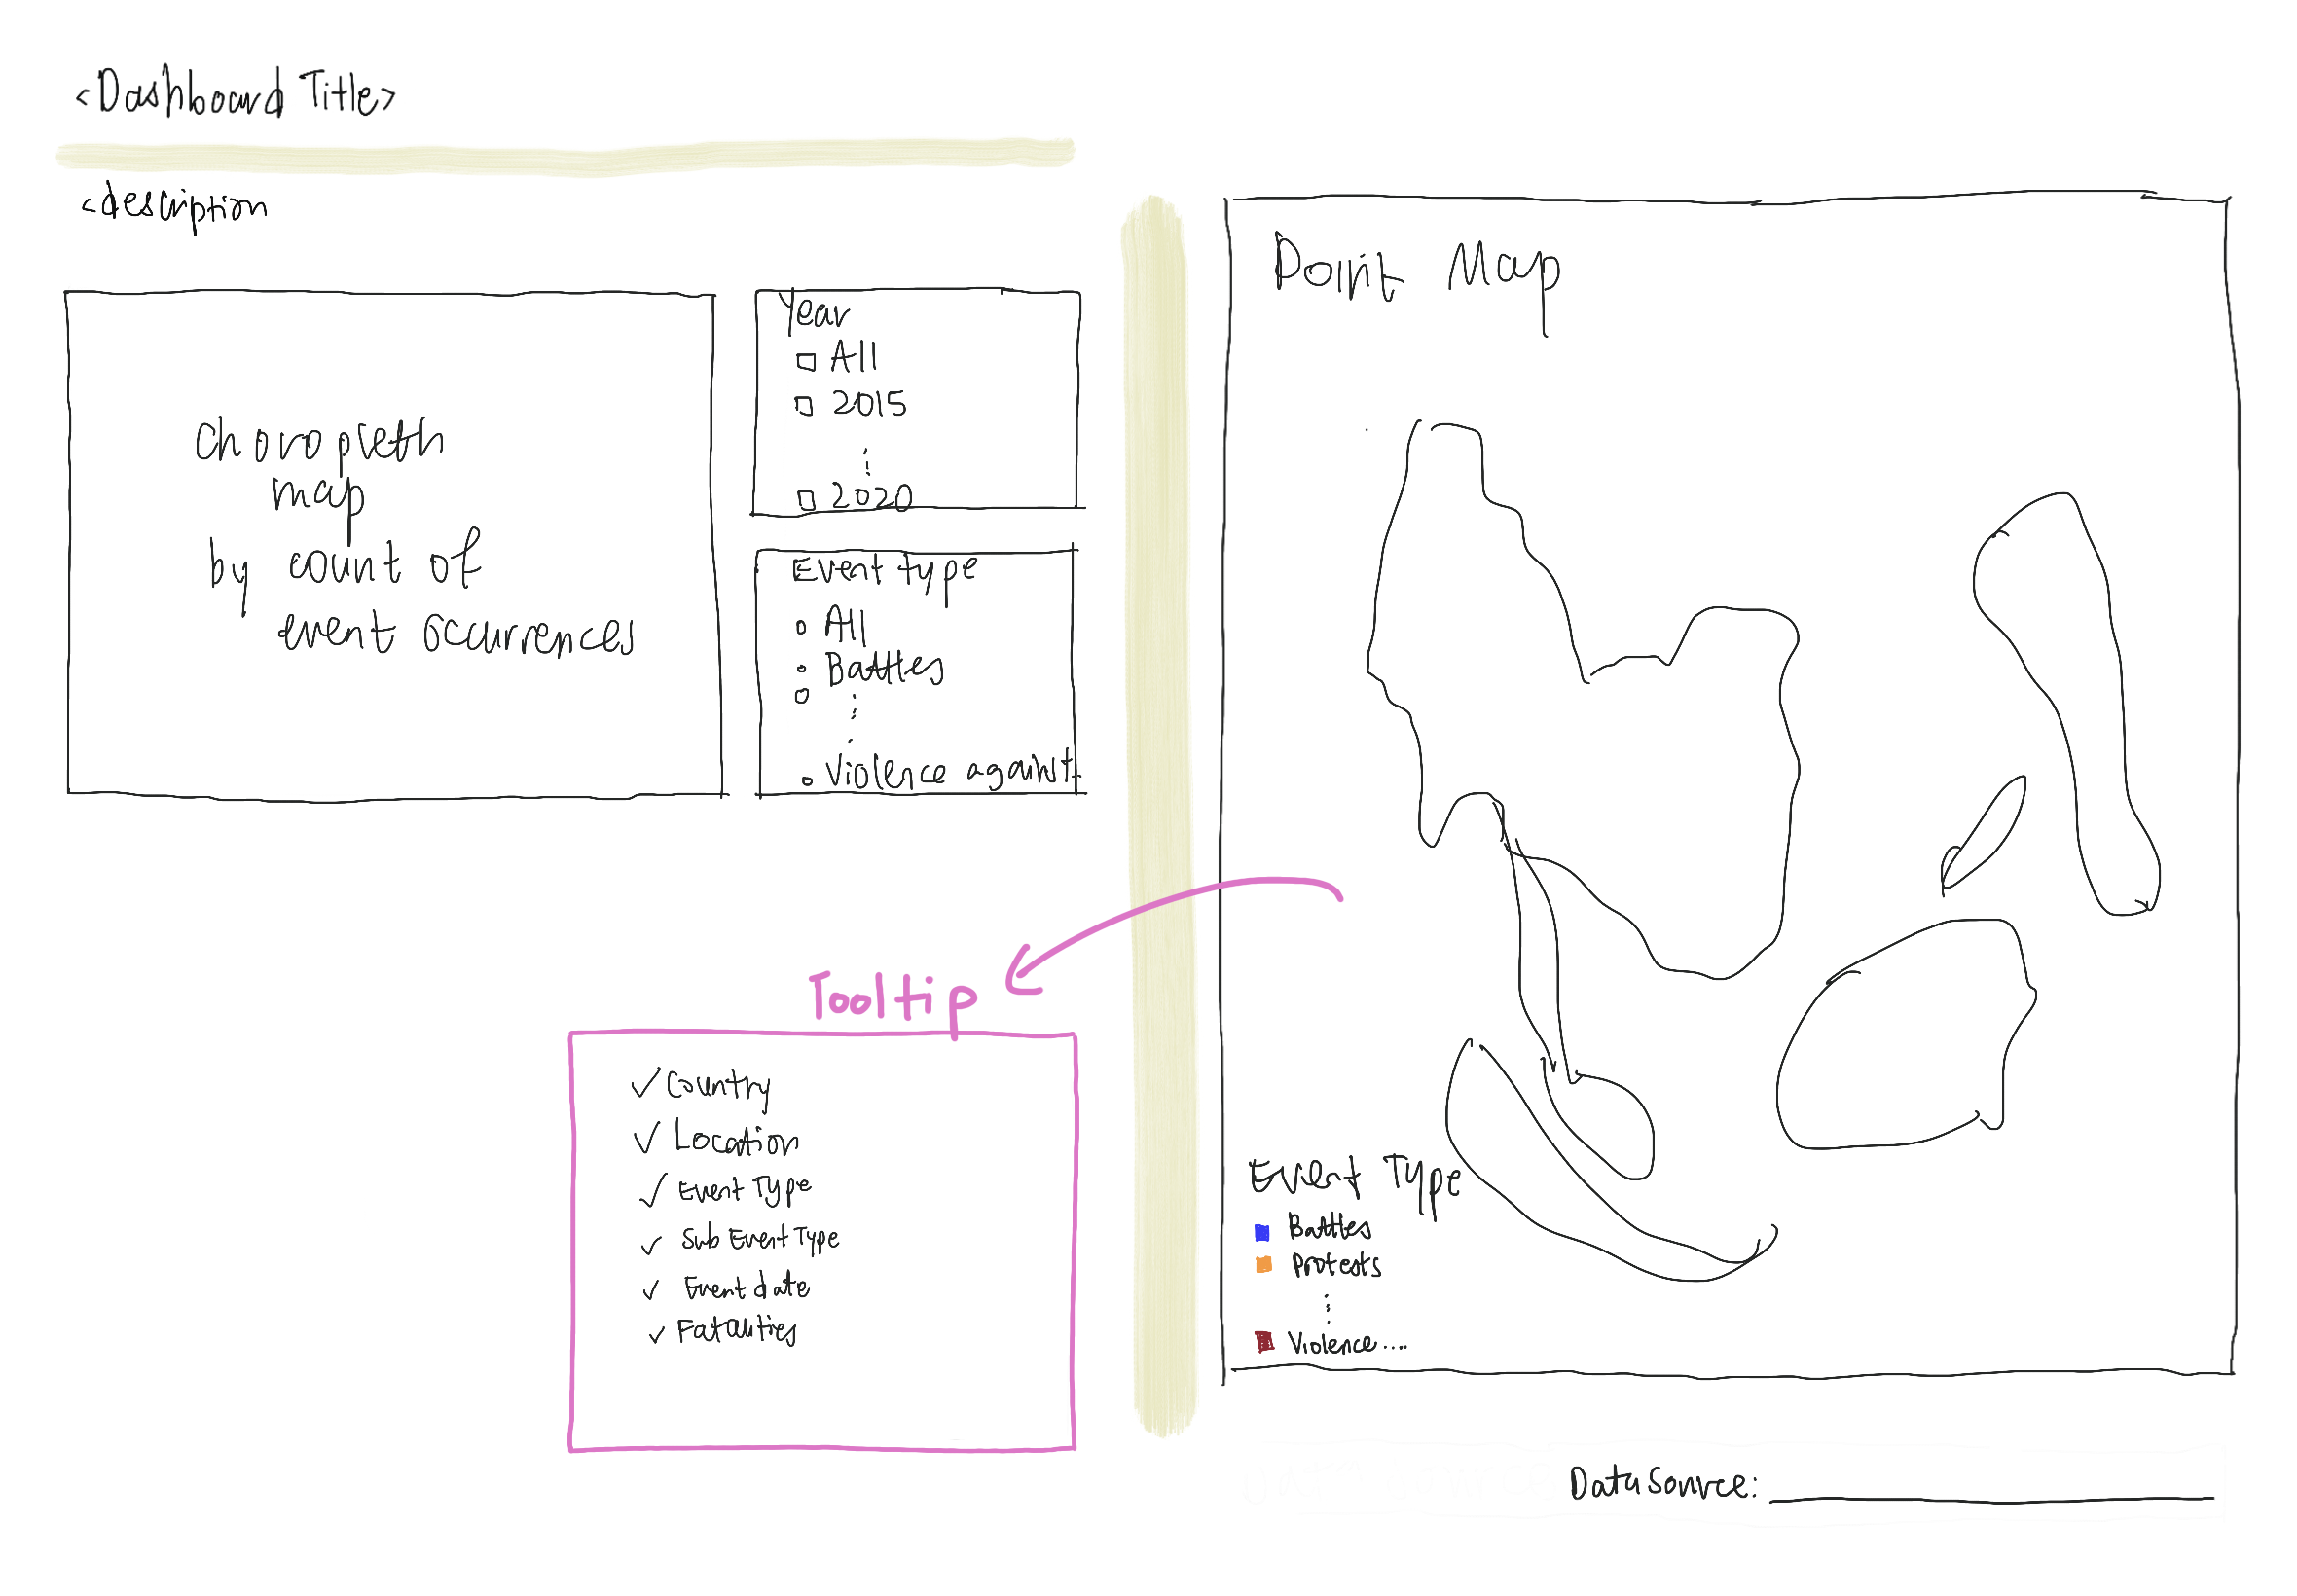 <Dashboard Title>
<description
Choropleth
map
by count of
event occurrences
Year
All
2015
2020
Event type
All
Battles
Violence against
Tooltip
Country
Location
Event Type
Sub Event Type
Event date
Fatalities
Point Map
Event Type
Battles
Protests
Violence....
Data Source: